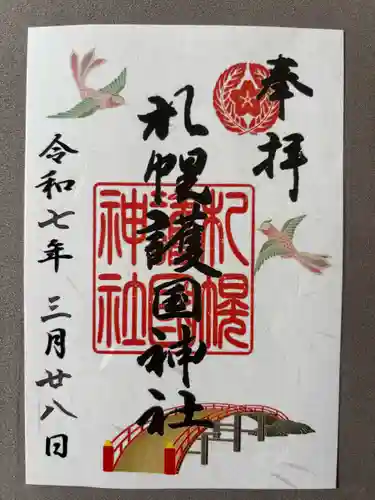 奉拝
札幌護国神社
札幌護国神社
令和七年 三月廿八日